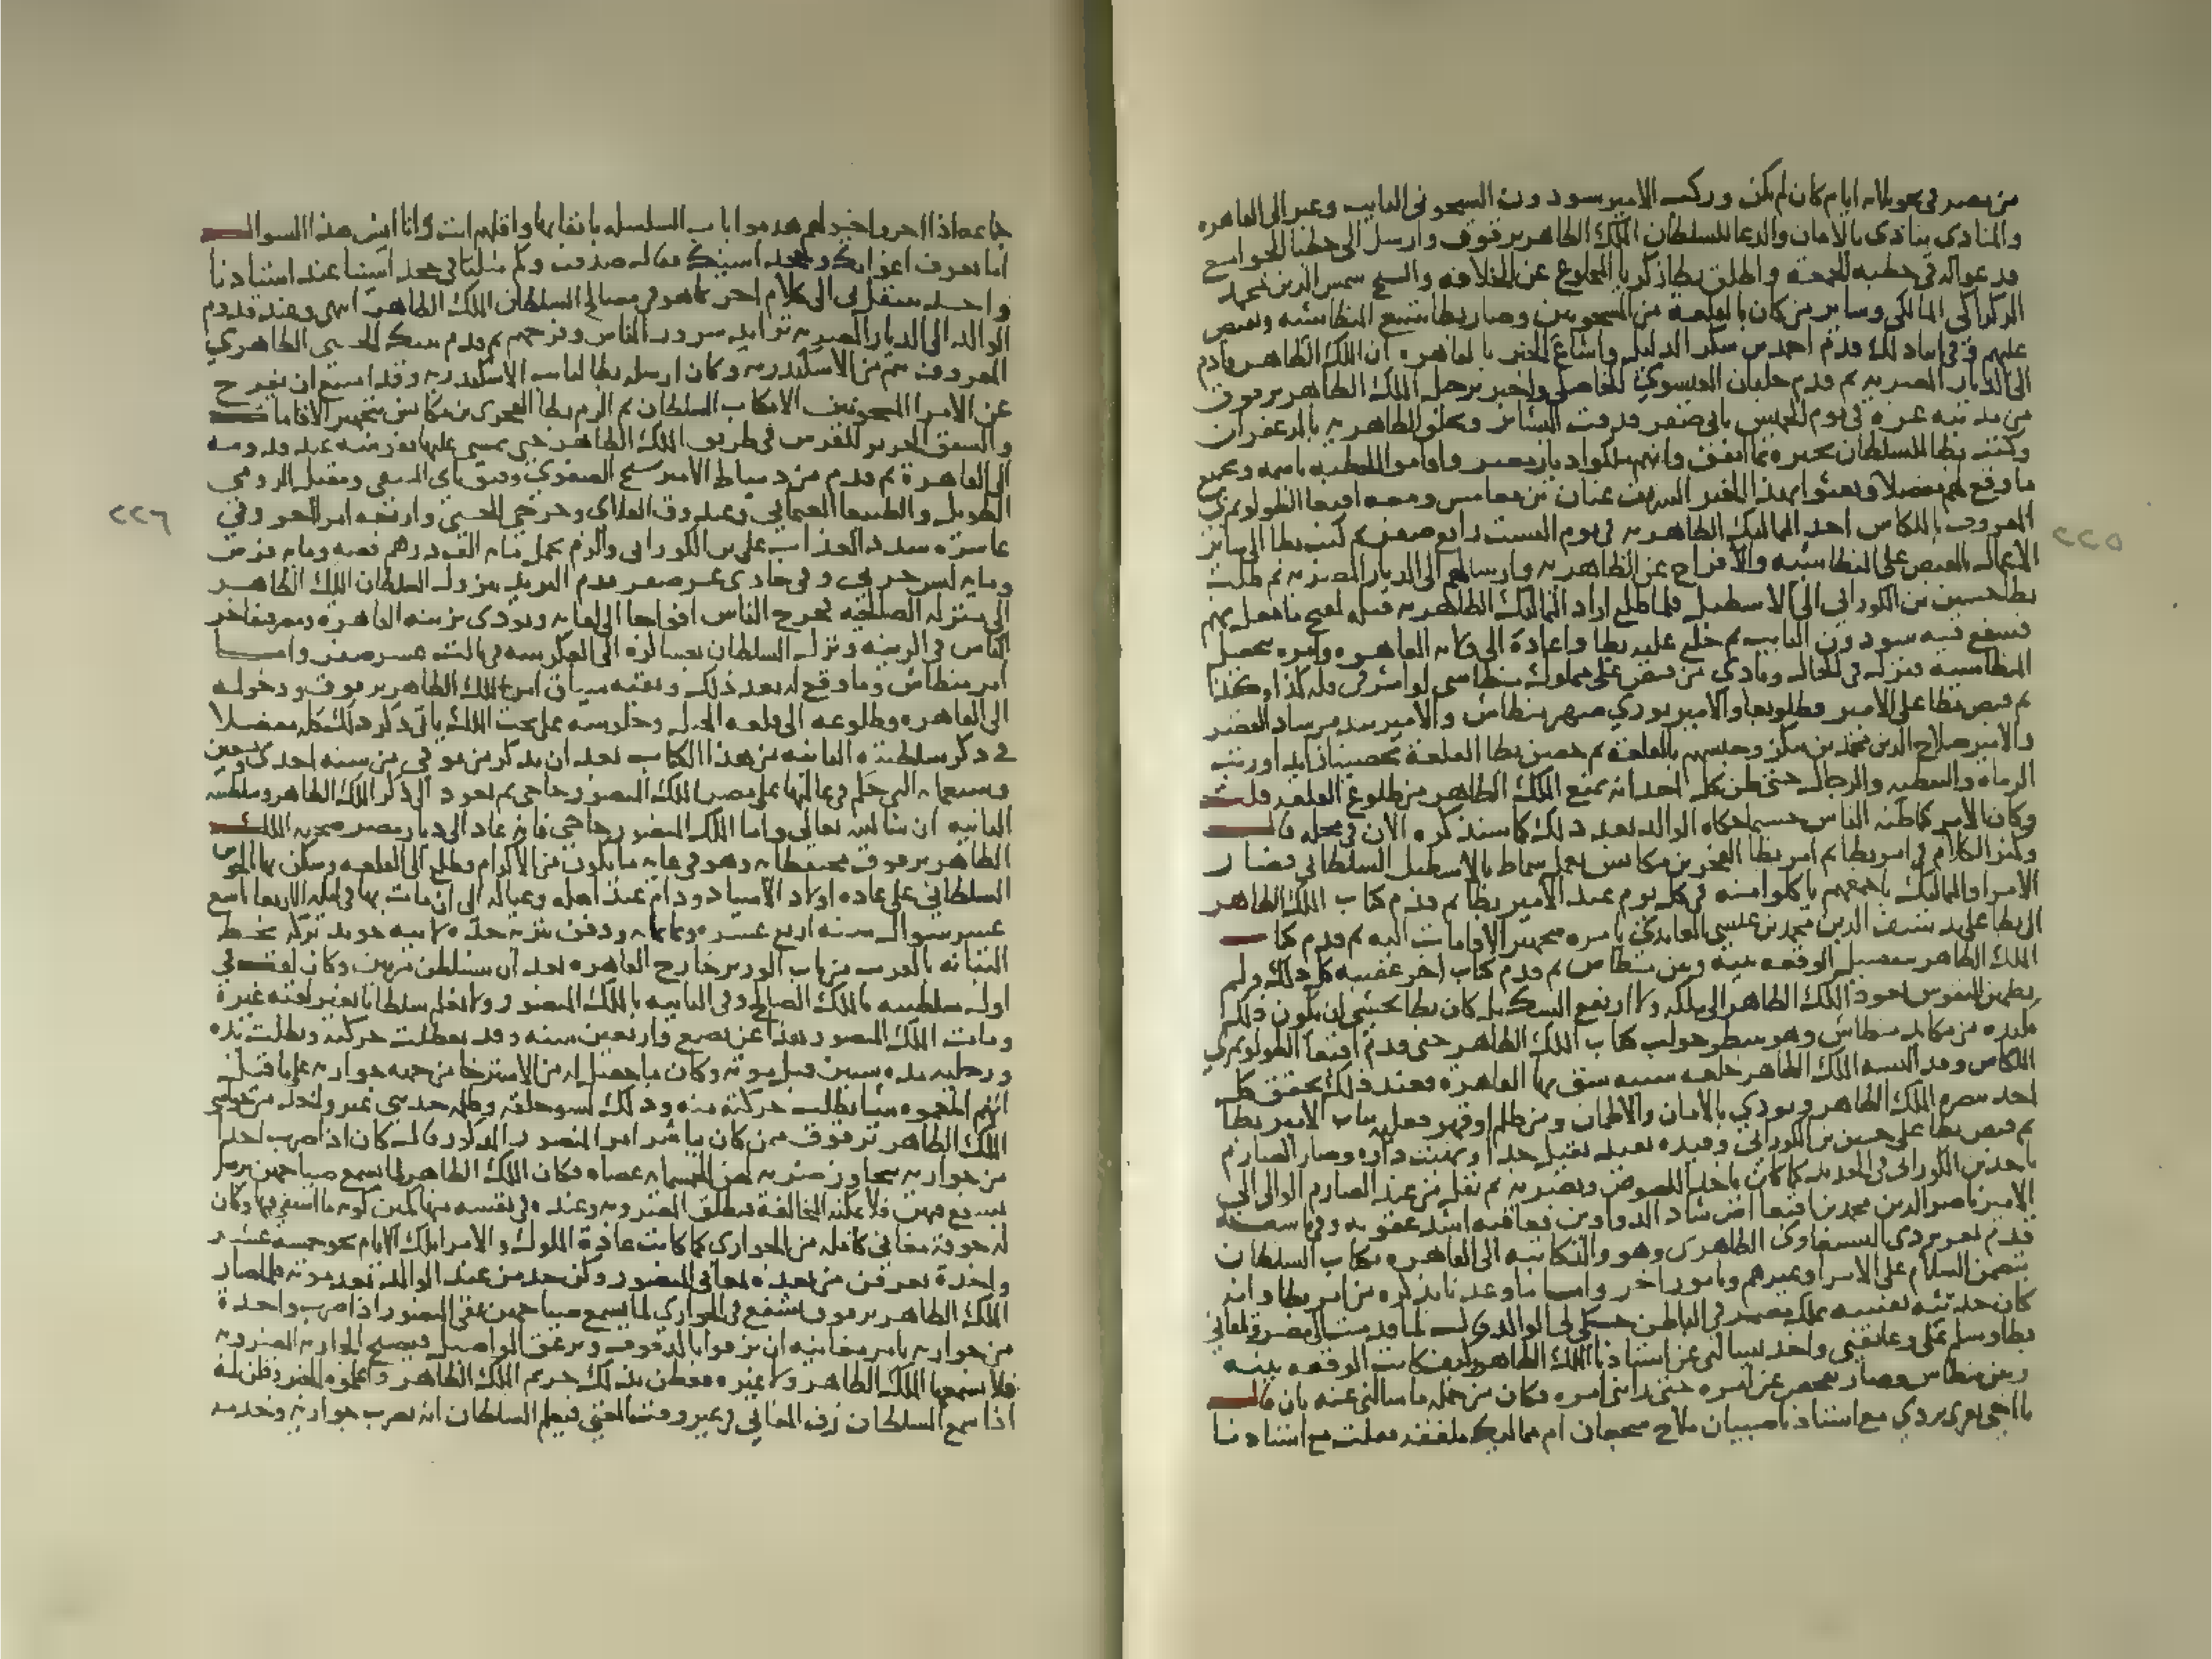 من مصر في نحو ثلاثة ايام كان لم يكن وركب الامير سودون الشيخوني النايب وعبر الى القاهره
والمنادي ينادي بالامان والدعا للسلطان الملك الظاهر برقوق وارسل الى خطبا الجوامع
فدعوا له في خطبه الجمعة واطلق بطا زكريا المخلوع عن الخلافه والشيخ شمس الدين محمد
الركراكي المالكي وساير من كان بالقلعة من المسجونين وصار بطا يتتبع المنطاشيه ويقبض
عليهم وفي اثناء ذلك قدم احمد بن شكر الدليل واشاع الخبر بالقاهره ان الملك الظاهر قادم
الى الديار المصريه ثم قدم جلبان العيسوي الخاصكي واخبر برحيل الملك الظاهر برقوق
من مدينه غزه في يوم الخميس ثاني صفر فدقت البشاير وتخلق الظاهريه بالزعفران
وكتب بطا للسلطان يخبره بما اتفق وانهم ملكوا ديار مصر واقاموا الخطبه باسمه وبجميع
ما وقع لهم مفصلا وبعثوا بهذا الخبر الشريف عنان بن مغامس ومعه اقبغا الطولوتمري
المعروف باللكاش احد المماليك الظاهريه في يوم السبت رابع صفر ثم كتب بطا الى ساير
الاعمال بالقبض على المنطاشيه والافراج عن الظاهريه وارسالهم الى الديار المصريه ثم طلب
بطا حسين بن الكوراني الى الاسطبل فلما طلع اراد المماليك الظاهريه قتله لقبح ما فعل بهم
فشفع فيه سودون النايب ثم خلع عليه بطا واعاده الى ولايه القاهره وامره بتحصيل
المنطاشيه فنزل في الحال ونادى من قبض على مملوك منطاشي او اشرفي فله كذا وكذا
ثم قبض بطا على الامير قطلوبغا والامير بوري صهر منطاش والامير بيدمر شاد القصر
والامير صلاح الدين محمد بن تنكز وحبسهم بالقلعة ثم حصن بطا القلعة تحصينا زايدا ورتب
الرماه والنفطيه والرجال حتى ظن كل احد انه يمنع الملك الظاهر من طلوع القلعه قلت
وكان الامر كما ظنه الناس حسبما حكاه الوالد بعد ذلك كما سنذكره الان في محله قال
وكثر الكلام في امر بطا ثم امر بطا الفخر بن مكانس بعمل سماط بالاسطبل السلطاني فصار
الامرا والمماليك باجمعهم ياكلوا منه في كل يوم عند الامير بطا ثم قدم كتاب الملك الظاهر
الى بطا على يد شرف الدين محمد بن عيسى العايدي يامره بتجهيز الاقامات اليه ثم قدم كتاب
الملك الظاهر بتفصيل الوقعه بينه وبين منطاش ثم قدم كتاب اخر عقيبه كل ذلك ولم
تطمئن النفوس لعود الملك الظاهر الى ملكه ولا ارتفع الشك بل كان بطا يخشى ان يكون ذلك
مكيده من مكايد منطاش وهو ينتظر جواب كتاب الملك الظاهر حتى قدم اقبغا الطولوتمري
اللكاش وقد البسه الملك الظاهر خلعه سنيه شق بها القاهرة فعند ذلك تحقق كل
احد بنصره الملك الظاهر ونودي بالامان والاطمان ومن ظلم او قهر فعليه بباب الامير بطا
ثم قبض بطا على حسين بن الكوراني وقيده بقيد ثقيل جدا ونهبت داره وصار الصارم
ياخذ بن الكوراني في الحديد كما كان ياخذ اللصوص ويضربه ثم نقله من عند الصارم الوالي الى
الامير ناصر الدين محمد بن اقبغا اص شاد الدواوين فعاقبه اشد عقوبه وفي سابعه
قدم تغري بردي البشبغاوي الظاهري وهو والدي كاتبه الى القاهره بكتاب السلطان
يتضمن السلام على الامرا وغيرهم وبامور اخر واما ما وعدنا بذكره من امر بطا وانه
كان حدثته نفسه بملك مصر في الباطن حكى لي الوالدي لما قدمت الى مصر لقاني
بطا وسلم علي وعانقني واخذ يسالني عن استاذنا الملك الظاهر وكيف كانت الوقعه بينه
وبين منطاش وصار يفحص عن امره حتى رابني امره فكان من جمله ما سالني عنه بان قال
يا اخي تغري بردي مع استاذنا صبيان ملاح شجعان ام مماليك ملفقه فقلت مع استاذنا
٢٢٥
جماعه اذا احروا خيولهم هدموا باب السلسله بانقابها واقلهم انت وانا ايش هذا السوال
اما تعرف اغواتك وخجداشيتك فقال صدقت وكم مثلنا في خجداشيتنا عند استاذنا
واخذ ينتقل بي الى كلام اخر مما هو في مصالح السلطان الملك الظاهر انتهى وعند قدوم
الوالد الى الديار المصريه تزايد سرور الناس وفرحهم ثم قدم بتخاص الظاهري
المعروف من الاسكندريه وكان ارسله بطا لنايب الاسكندريه وقد امتنع ان يفرج
عن الامرا المسجونين الا بكتاب السلطان ثم الزم بطا الفخر بن مكانس بتجهيز الاقامات
والشقق الحرير للفرش في طريق الملك الظاهر حتى يمشي عليها بفرسه عند قدومه
الى القاهرة ثم قدم من دمياط الامير شيخ الصفوي وقنق باي السيفي ومقبل الرومي
الطويل والطنبغا العثماني وعبدوق العلاي وجرجي الحسني واربعه امرا اخر وفي
عاشره شدد العذاب على بن الكوراني والزم بحمل مايه الف درهم فضه ومايه فرس
ومايه لبس حربي وفي حادي عشر صفر قدم البريد بنزول السلطان الملك الظاهر
الى منزله الصالحيه فخرج الناس افواجا الى لقايه ونودي بزينه القاهره ومصر فتفاخر
الناس في الزينه ونزل السلطان بعساكره الى العكرشه في ثالث عشر صفر واما
امر منطاش وما وقع له بعد ذلك وبقيه سياق امر الملك الظاهر برقوق ودخوله
الى القاهره وطلوعه الى قلعه الجبل وجلوسه على تخت الملك ياتي ذكر ذلك كله مفصلا
في ذكر سلطنته الثانيه من هذا الكتاب بعد ان نذكر من توفي من سنه احدى وتسعين
وسبعمايه التي حكم في غالبها على مصر الملك المنصور حاجي ثم نعود الى ذكر الملك الظاهر وسلطنته
الثانيه ان شا الله تعالى واما الملك المنصور حاجي فانه عاد الى ديار مصر صحبه الملك
الظاهر برقوق محتفظا به وهو في غايه ما يكون من الاكرام وطلع الى القلعه وسكن بها بالحوش
السلطاني على عاده اولاد الاسياد ودام عند اهله وعياله الى ان مات بها في ليله الاربعا تاسع
عشر شوال سنه اربع عشره وثمانمايه ودفن بتربه جدته لابيه خوند بركه بخط
التبانه بالقرب من باب الوزير خارج القاهره بعد ان تسلطن مرتين وكان لقب في
اول سلطنته بالملك الصالح وفي الثانيه بالملك المنصور ولا نعلم سلطانا تغير لقبه غيره
ومات الملك المنصور هذا عن بضع واربعين سنه وقد تعطلت حركته وبطلت يده
ورجليه مده سنين قبل موته وكان ما حصل له من الاسترخا من جهه جواريه على ما قيل
انهم اطعموه شيا بطلت حركته منه وذلك لسو خلقه وظلمه حدثني غير واحد من حواشي
الملك الظاهر برقوق ممن كان يباشر امر المنصور المذكور قال كان اذا ضرب احدا
من جواريه يتجاوز ضربه لهن الخمسمايه عصاه فكان الملك الظاهر لما يسمع صياحهن يرسل
يشفع فيهن فلا يمكنه المخالفة فيطلق المضروبه وعنده في نفسه منها كمين كونه ما اشتفى فيها وكان
له جوقة مغاني كامله من الجواري كما كانت عادة الملوك والامرا تلك الايام نحو خمسه عشر
واحدة يعرفن من بعده بمغاني المنصور وكن خدمن عند الوالد بعد موته فلما صار
الملك الظاهر برقوق يشفع في الجواري لما يسمع صياحهن بقى المنصور اذا ضرب واحدة
من جواريه يامر مغانيه ان يزفوا بالدفوف وتزعق المواصيل فيصيح الجواريه المضروبه
فلا يسمعها الملك الظاهر ولا غيره ففطن بذلك حريم الملك الظاهر واعلموه الخبر وقلن له
اذا سمع السلطان زف المغاني في غير وقت المغنى فيعلم السلطان انه يضرب جواريه وخدمه
٢٢٦